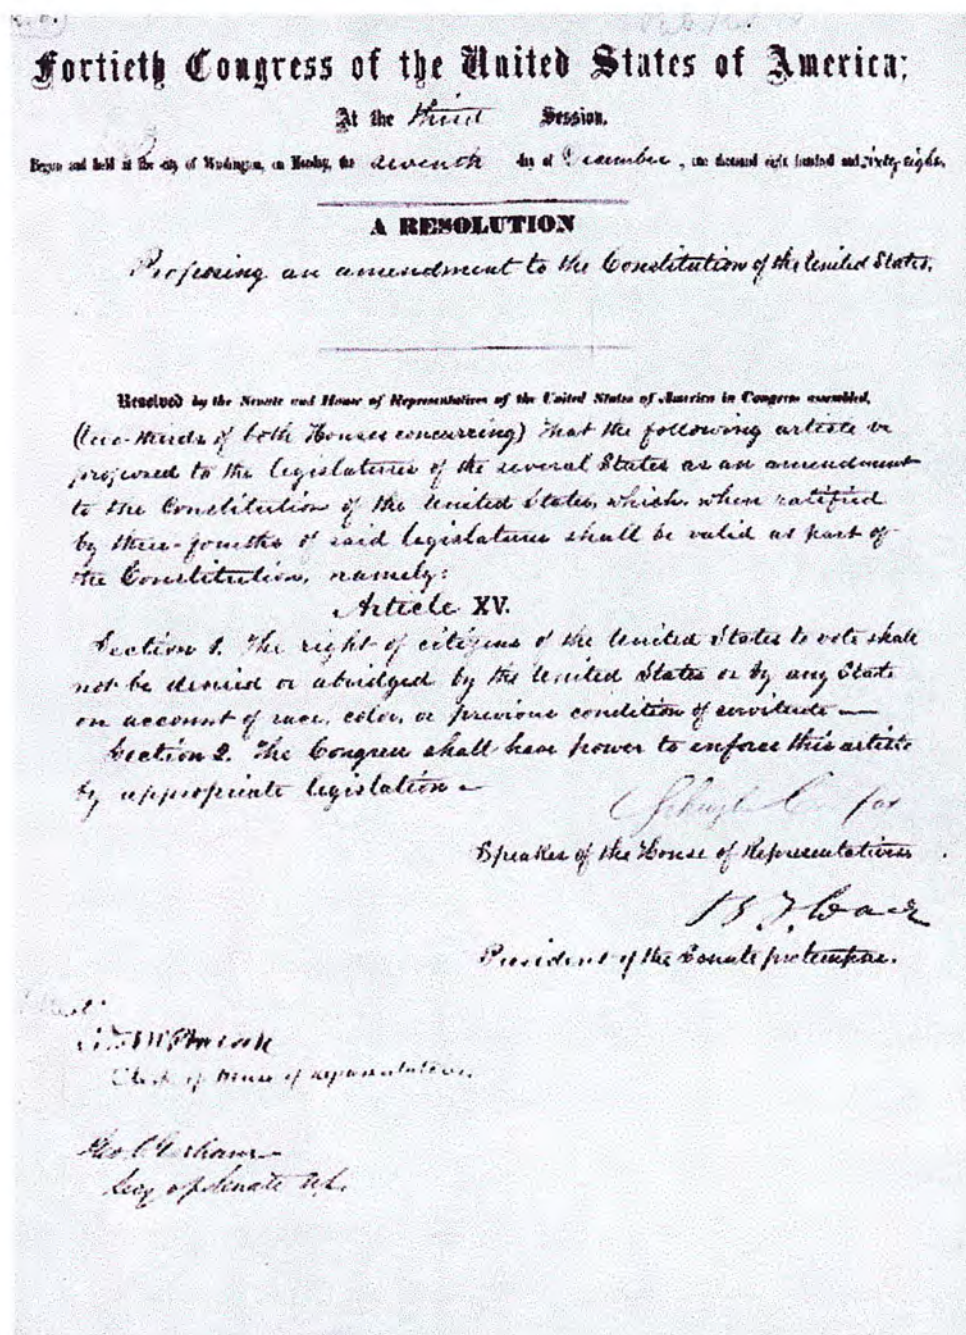 Fortieth Congress of the United States of America;
At the third Session,
Begun and held at the city of Washington, on Monday, the seventh day of December, one thousand eight hundred and sixty-eight.
A RESOLUTION
Proposing an amendment to the Constitution of the United States.
Resolved by the Senate and House of Representatives of the United States of America in Congress assembled,
(two-thirds of both Houses concurring) That the following article be
proposed to the legislatures of the several States as an amendment
to the Constitution of the United States, which, when ratified
by three-fourths of said legislatures shall be valid as part of
the Constitution, namely:
Article XV.
Section 1. The right of citizens of the United States to vote shall
not be denied or abridged by the United States or by any State
on account of race, color, or previous condition of servitude—
Section 2. The Congress shall have power to enforce this article
by appropriate legislation—
Schuyler Colfax
Speaker of the House of Representatives
B. F. Wade
President of the Senate pro tempore.
Clerk of House of Representatives.
Geo. C. Gorham
Secy of Senate U.S.